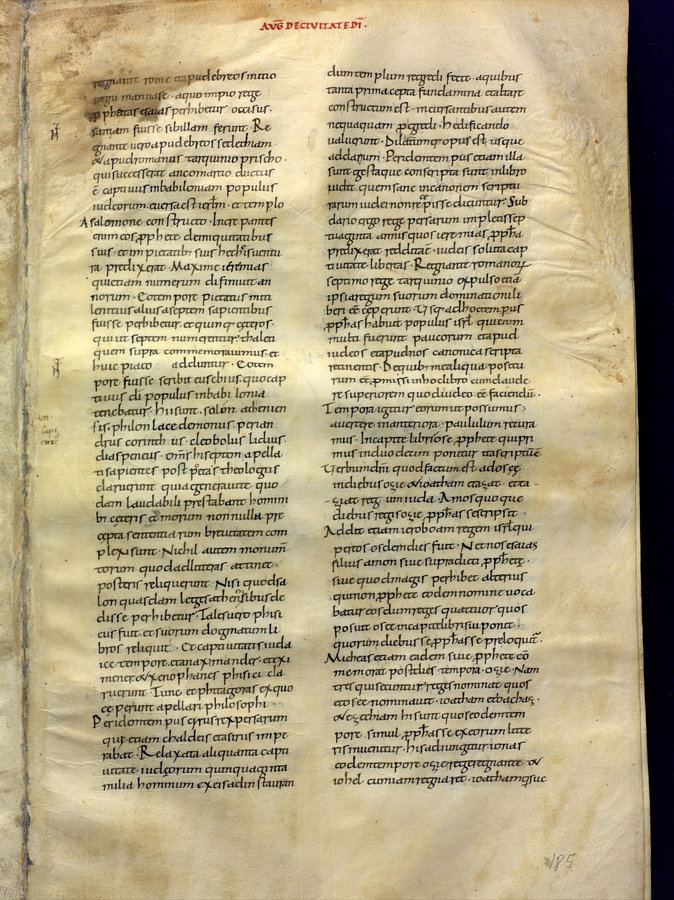 AUG DE CIVITATE DI.
regnante rome et apud ebreos initio
regni mannase. a quo impio rege
ppheta esaias perhibetur occisus.
samiam fuisse sibillam ferunt. Re
gnante vero apud ebreos sedechiam.
& apud romanos tarquinio prisco.
qui successerat anco martio ductus
e captivus in babiloniam populus
iudeorum. eversa est ierlm. et templo
A salomone constructo. Increpantes
enim eos pphete de iniquitatibus
suis. et impietatib; suis hec his ventu
ra predixerat. Maxime ieremias
qui etiam numerum difinivit an
norum. Eo tempore pictatus miti
lentius alius a septem sapientibus
fuisse perhibetur. et quinq; ceteros.
qui ut septem numerentur. thaleti
quem supra commemoravimus. et
huic piaco adduntur. Eo tem
pore fuisse scribit eusebius. quo cap
tivus di populus in babilonia
tenebatur. hi sunt. solon athenien
sis. philon lacedemonius. perian
drus corinthius. cleobolus lidius.
dias pencus. Oms hi septem apella
ti sapientes post petas theologus
claruerunt. quia genere vite quo
dam laudabili prestabant homini
bi ceteris. et morum nonnulla pre
cepta sententiarum brevitate com
plexi sunt. Nichil autem monum
torum quod ad litteras attinet.
posteris reliquerunt. Nisi quod sa
lon quasdam leges atheniensibus de
disse perhibetur. Tales vero phisi
cus fuit. et suorum dogmatum li
bros reliquit. Et captivitatis iuda
ice tempore. et anaximander. et exi
menes. & xenophanes phisici cla
ruerunt. Tunc et phitagoras ex quo
ceperunt apellari philosophi.
Per idem tempus cyrus rex persarum
qui etiam chaldeis et asiriis impe
rabat. Relaxata aliquanta capti
vitate iudeorum quinquaginta
milia hominum ex eis ad instauran
dum templum regredi fecit. a quibus
tanta prima cepta fundamina et altare
constructum est. incursantibus autem
nequaquam pgredi. h edificando
valuerunt. Dilatumq; opus est usque
ad darium. Per idem tempus etiam illa
sunt gesta que conscripta sunt in libro
iudit. quem sane in canonem scriptu
rarum iudei non recepisse dicuntur. Sub
dario ergo rege persarum impletis sep
tuaginta annis quos ieremias. ppha
predixerat reddita e. iudeis soluta cap
tivitate libertas. Regnante romanor
septimo rege tarquinio expulso etia
ipsi a regum suorum dominatione li
beri ee ceperunt. Usq; ad hoc tempus
pphas habuit populus isrl. qui cum
multi fuerint paucorum et apud
iudeos et apud nos canonica scripta
retinentur. De quib; me aliqua positu
rum ee. pmisi in hoc libro cum claude
re superiorem quod iu video ee faciendu.
Tempora igitur eorum ut possumus.
avertere in anteriora. paululum recura
mus. In capite libri osee. pphete qui pri
mus in duodecim ponitur ita scriptu e
Verbum dni quod factum est ad osee
in diebus ozie. & ioathan et azat. et eta
ziat reg um iuda. Amos quoque
diebus regis ozie. pphas se scripsit.
Addit etiam ieroboam regem isrl qui
per eos dem dies fuit. Nec non esaias
filius amon sive supradicti pphete.
sive quod magis perhibet alterius
qui non pphete eodem nomine voca
batur. eosdem reges quattuor quos
posuit osee in capite libri sui ponit.
quorum diebus se pphasse preloquit.
Micheas etiam eadem sive pphete co
memorat post dies tempora ozie. Nam
tres qui secuntur reges nominat quos
et osee nominavit. ioatham et bachaz.
& ezetham hi sunt quos eodem tem
pore simul pphasse ex eorum litte
ris invenitur. his adiungitur ionas
eodem tempore ozie rege regnante. &
iohel cum iam regnaret. ioatham q; suc
185